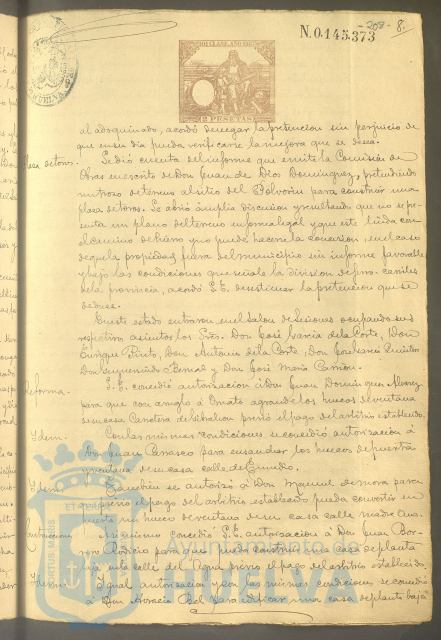 N.0.145.373
208 8.
10ª CLASE. AÑO
2 PESETAS
al adoquinado, acordó denegar la pretencion sin perjuicio de
que en su dia pueda verificarse la mejora que se desea.
Plaza de toros. Se dió cuenta del informe que emite la Comision de
Obras en escrito de Don Juan de Dios Dominguez, pretendiendo
un trozo de terreno al sitio del Polvorin para construir una
plaza de toros. Se abrió ámplia discusion y resultando que no se pre-
senta un plano del terreno en forma legal y que este linda con
el camino de hierro y no puede hacerse la concesion, en el caso
de que la propiedad fuera del municipio sin informe favorable
y bajo las condiciones que señale la division de ferro-carriles
de la provincia, acordó S.E. desestimar la pretencion que se
deduce.
En este estado entraron en el Salon de Sesiones ocupando sus
respectivos asientos los Sres. Don José Garcia de la Corte, Don
Enrique Pinto, Don Antonio de la Corte, Don
Don Bernal y Don José Maria Carrion.
Reforma. S.E. concedió autorizacion á Don Juan Dominguez Alvarez
para que con arreglo á Ornato agrande los huecos de ventana
de su casa Carretera de Gibraleon previo el pago del arbitrio establecido.
Ydem. Con las mismas condiciones se concedió autorizacion á
Don Juan Carrasco para ensanchar los huecos de puerta
y ventana de su casa calle de
Ydem. Tambien se autorizó á Don Manuel de mora para
que previo el pago del arbitrio establecido pueda convertir en
puerta un hueco de ventana de su casa calle madre Ana.
Autorizacion. Asi mismo concedió S.E. autorizacion á Don Juan
para que pueda construir una casa de planta
baja en la calle del Agua previo el pago del arbitrio establecido.
Ydem. Igual autorizacion y con las mismas condiciones se concedió
á Don Horacio Bel para edificar una casa de planta baja
Ayuntamiento de
HUELVA